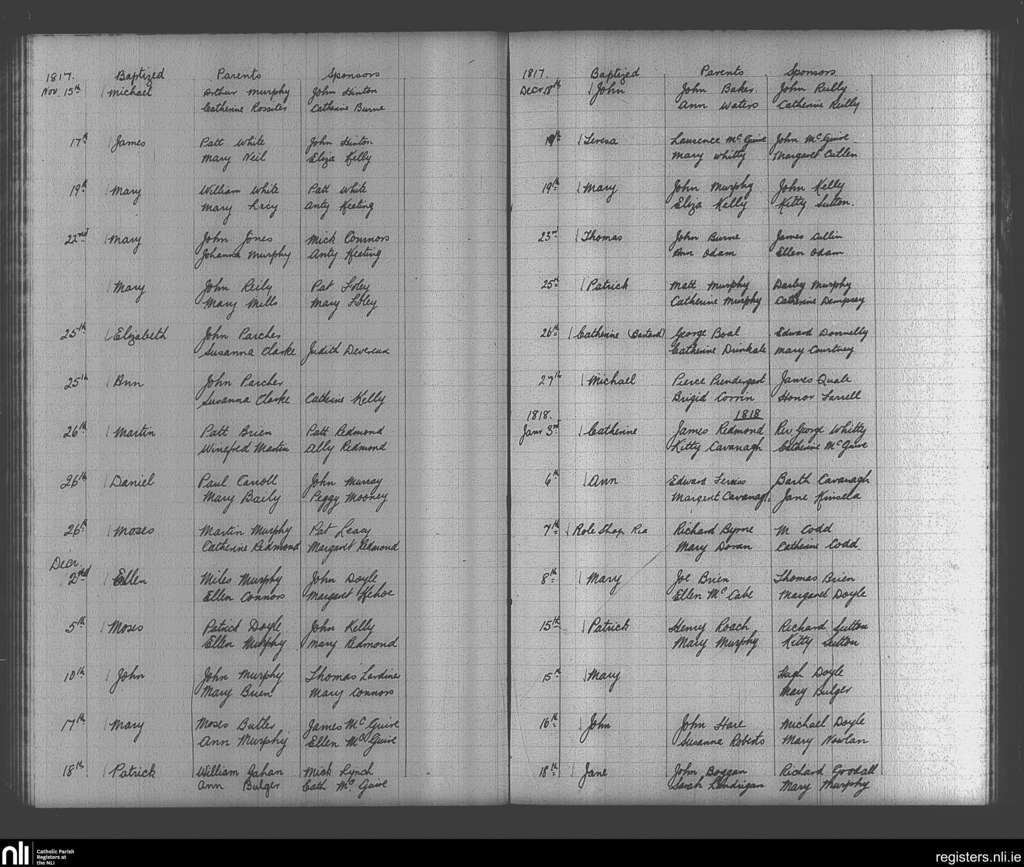 1817. Baptized Parents Sponsors
Nov. 15th Michael Arthur Murphy John Hinton
Catherine Rossiter Catherine Burne
17th James Patt White John Hinton
Mary Neil Eliza Kelly
19th Mary William White Patt White
Mary Anty Keeting
22nd Mary John Jones Mick Connors
Johanna Murphy Anty Keeting
Mary John Reily Pat Foley
Mary Mills Mary Foley
25th Elizabeth John Parcher
Susanna Clarke Judith Devereux
25th Ann John Parcher
Susanna Clarke Catherine Kelly
26th Martin Patt Brien Patt Redmond
Winefred Martin Ally Redmond
26th Daniel Paul Carroll John Murray
Mary Baily Peggy Mooney
26th Moses Martin Murphy Pat Leacy
Catherine Redmond Margaret Redmond
Decr
2nd Ellen Miles Murphy John Doyle
Ellen Connors Margaret Kehoe
5th Moses Patrick Doyle John Kelly
Ellen Murphy Mary Redmond
10th John John Murphy Thomas Lardiner
Mary Brien Mary Connors
17th Mary Moses Butler James McGuire
Ann Murphy Ellen McGuire
18th Patrick William Gahan Mick Lynch
Ann Bulger Cath McGuire
1817. Baptized Parents Sponsors
Decr 18th John John Baker John Reilly
Ann Waters Catherine Reilly
19th Teresa Laurence McGuire John McGuire
Mary Whitty Margaret Cullen
19th Mary John Murphy John Kelly
Eliza Kelly Kitty Sutton.
23rd Thomas John Burne James Cullin
Ann Odam Ellen Odam
25th Patrick Matt Murphy Darby Murphy
Catherine Murphy Catherine Dempsey
26th Catherine (Bastard) George Boal Edward Donnelly
Catherine Drinkale Mary Courtney
27th Michael Pierce Prendergast James Quale
Brigid Corrin Honor Farrell
1818. 1818
Janr 3rd Catherine James Redmond Rev George Whitty
Kitty Cavanagh Catherine McGuire
6th Ann Edward Barth Cavanagh
Margaret Cavanagh. Jane Kinsela
7th Richard Byrne M Codd
Mary Doran Catherine Codd
8th Mary Joe Brien Thomas Brien
Ellen McCabe Margaret Doyle
15th Patrick Henry Roach Richard Sutton
Mary Murphy Kitty Sutton
15th Mary Hugh Doyle
Mary Bulger
16th John John Hare Michael Doyle
Susanna Roberts Mary Nowlan
18th Jane John Boggan Richard Goodall
Sarah Londrigan Mary Murphy
nli Catholic Parish
Registers at
the NLI
registers.nli.ie